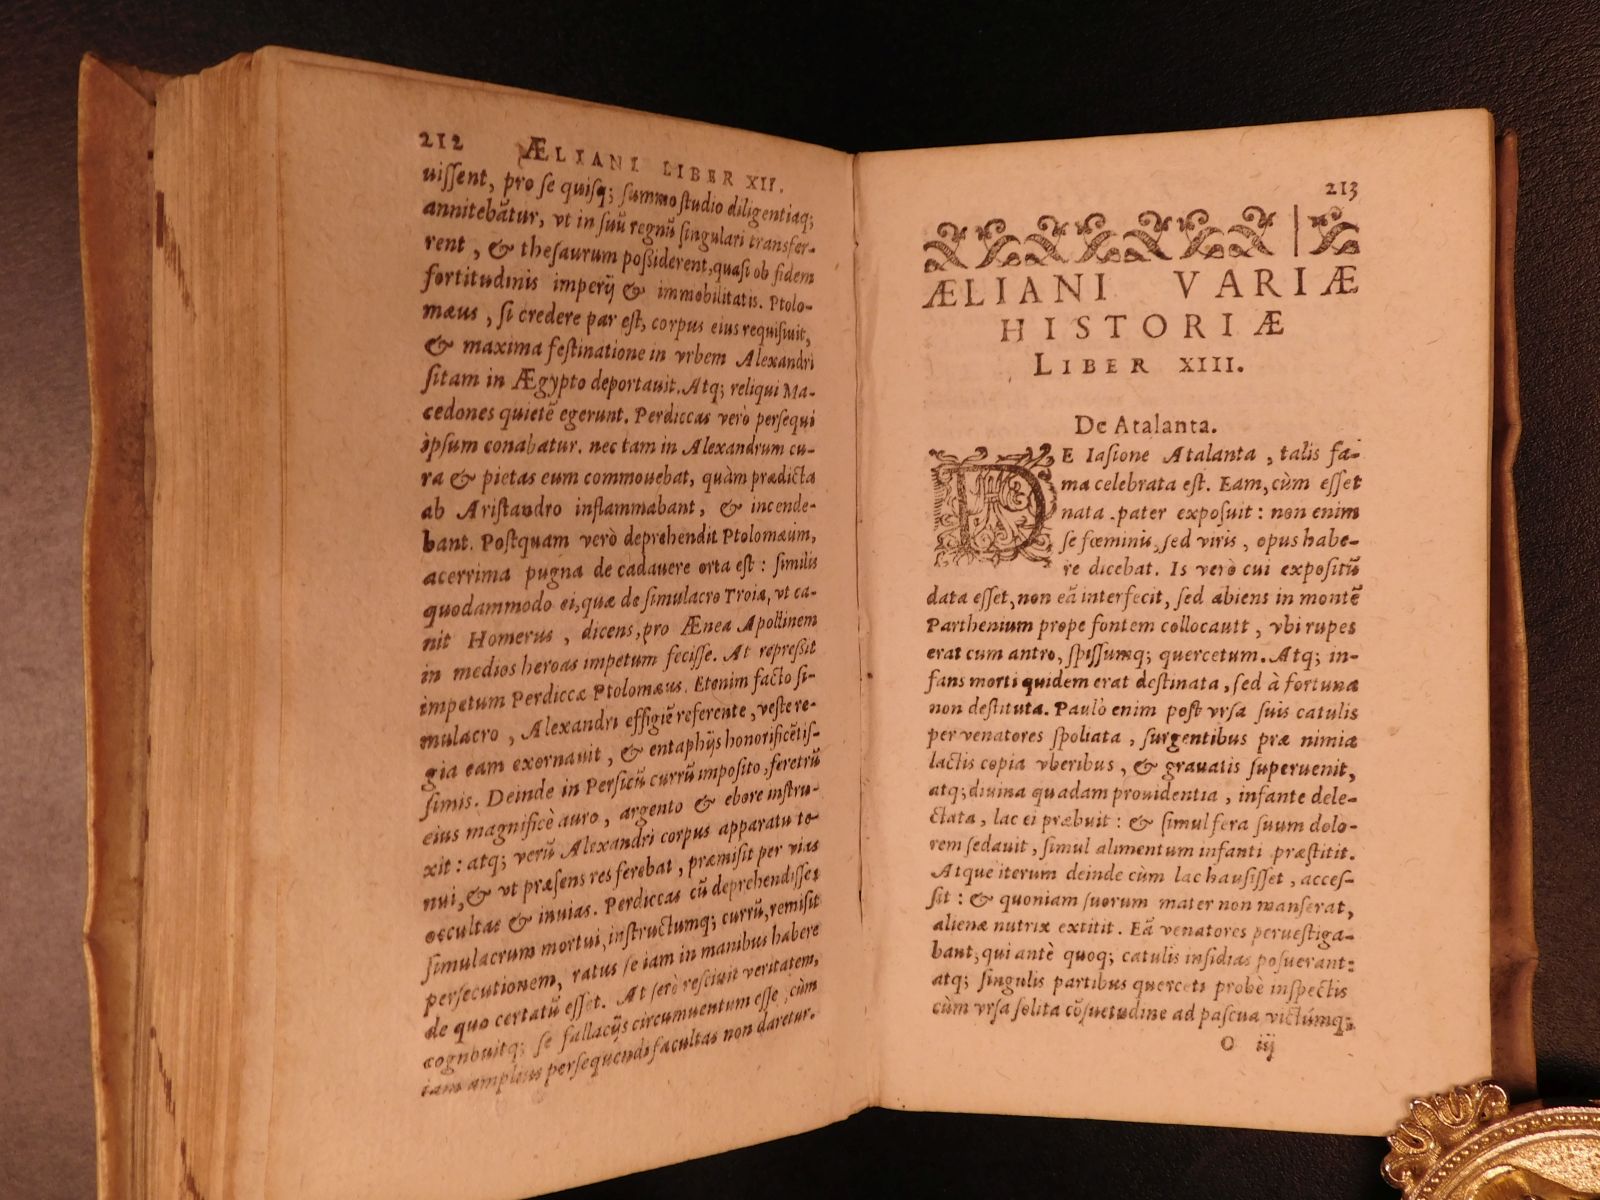 212 ÆLIANI LIBER XII.
uissent, pro se quisq; summo studio diligentiaq;
annitebātur, vt in suū regnū singulari transfer-
rent, & thesaurum possiderent, quasi ob fidem
fortitudinis imperij & immobilitatis. Ptolo-
mæus, si credere par est, corpus eius requisiuit,
& maxima festinatione in vrbem Alexandri
sitam in Ægypto deportauit. Atq; reliqui Ma-
cedones quietē egerunt. Perdiccas verò persequi
ipsum conabatur. nec tam in Alexandrum cu-
ra & pietas eum commouebat, quàm prædicta
ab Aristandro inflammabant, & incende-
bant. Postquam verò deprehendit Ptolomæum,
acerrima pugna de cadauere orta est: similis
quodammodo ei, quæ de simulacro Troiæ, vt ca-
nit Homerus, dicens, pro Ænea Apollinem
in medios heroas impetum fecisse. At repressit
impetum Perdiccæ Ptolomæus. Etenim facto si-
mulacro, Alexandri effigiē referente, veste re-
gia eam exornauit, & entaphijs honorificētis-
simis. Deinde in Persicū currū imposito, feretrū
eius magnificè auro, argento & ebore instru-
xit: atq; verū Alexandri corpus apparatu te-
nui, & vt præsens res ferebat, præmisit per vias
occultas & inuias. Perdiccas cū deprehendisset
simulacrum mortui, instructumq; currū, remisit
persecutionem, ratus se iam in manibus habere
de quo certatū esset. At serò resciuit veritatem,
cognouitq; se fallacijs circumuentum esse, cùm
iam amplius persequendi facultas non daretur.
213
ÆLIANI VARIÆ
HISTORIÆ
LIBER XIII.
De Atalanta.
DE Iasione Atalanta, talis fa-
ma celebrata est. Eam, cùm esset
nata pater exposuit: non enim
se fœminis, sed viris, opus habe-
re dicebat. Is verò cui expositū
data esset, non eā interfecit, sed abiens in montē
Parthenium prope fontem collocauit, vbi rupes
erat cum antro, spissumq; quercetum. Atq; in-
fans morti quidem erat destinata, sed à fortuna
non destituta. Paulò enim post vrsa suis catulis
per venatores spoliata, surgentibus præ nimia
lactis copia vberibus, & grauatis superuenit,
atq; diuina quadam prouidentia, infante dele-
ctata, lac ei præbuit: & simul fera suum dolo-
rem sedauit, simul alimentum infanti præstitit.
Atque iterum deinde cùm lac hausisset, acces-
sit: & quoniam suorum mater non manserat,
alienæ nutrix extitit. Eā venatores peruestiga-
bant, qui antè quoq; catulis insidias posuerant:
atq; singulis partibus querceti probè inspectis
cùm vrsa solita cōsuetudine ad pascua victumq;
O iij